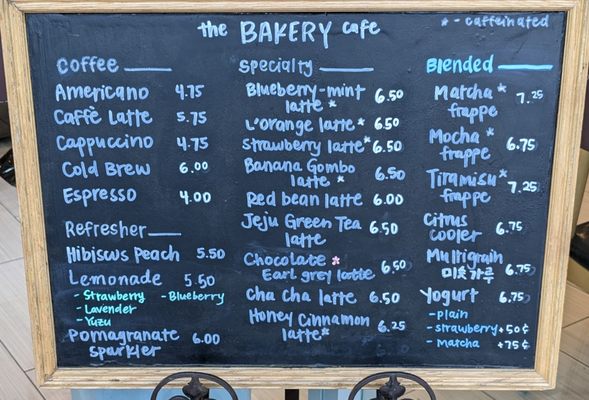 the BAKERY cafe
* - caffeinated
Coffee
Americano 4.75
Caffè Latte 5.75
Cappuccino 4.75
Cold Brew 6.00
Espresso 4.00
Refresher
Hibiscus Peach 5.50
Lemonade 5.50
- Strawberry - Blueberry
- Lavender
- Yuzu
Pomagranate 6.00
sparkler
Specialty
Blueberry-mint 6.50
latte *
L'orange latte * 6.50
strawberry latte * 6.50
Banana Gombo 6.50
latte *
Red bean latte 6.00
Jeju Green Tea 6.50
latte
Chocolate *
Earl grey latte 6.50
Cha Cha latte 6.50
Honey Cinnamon 6.25
latte *
Blended
Matcha * 7.25
frappe
Mocha * 6.75
frappe
Tiramisu * 7.25
frappe
Citrus 6.75
cooler
Multigrain
미숫가루 6.75
Yogurt 6.75
- plain
- strawberry +50¢
- Matcha +75¢